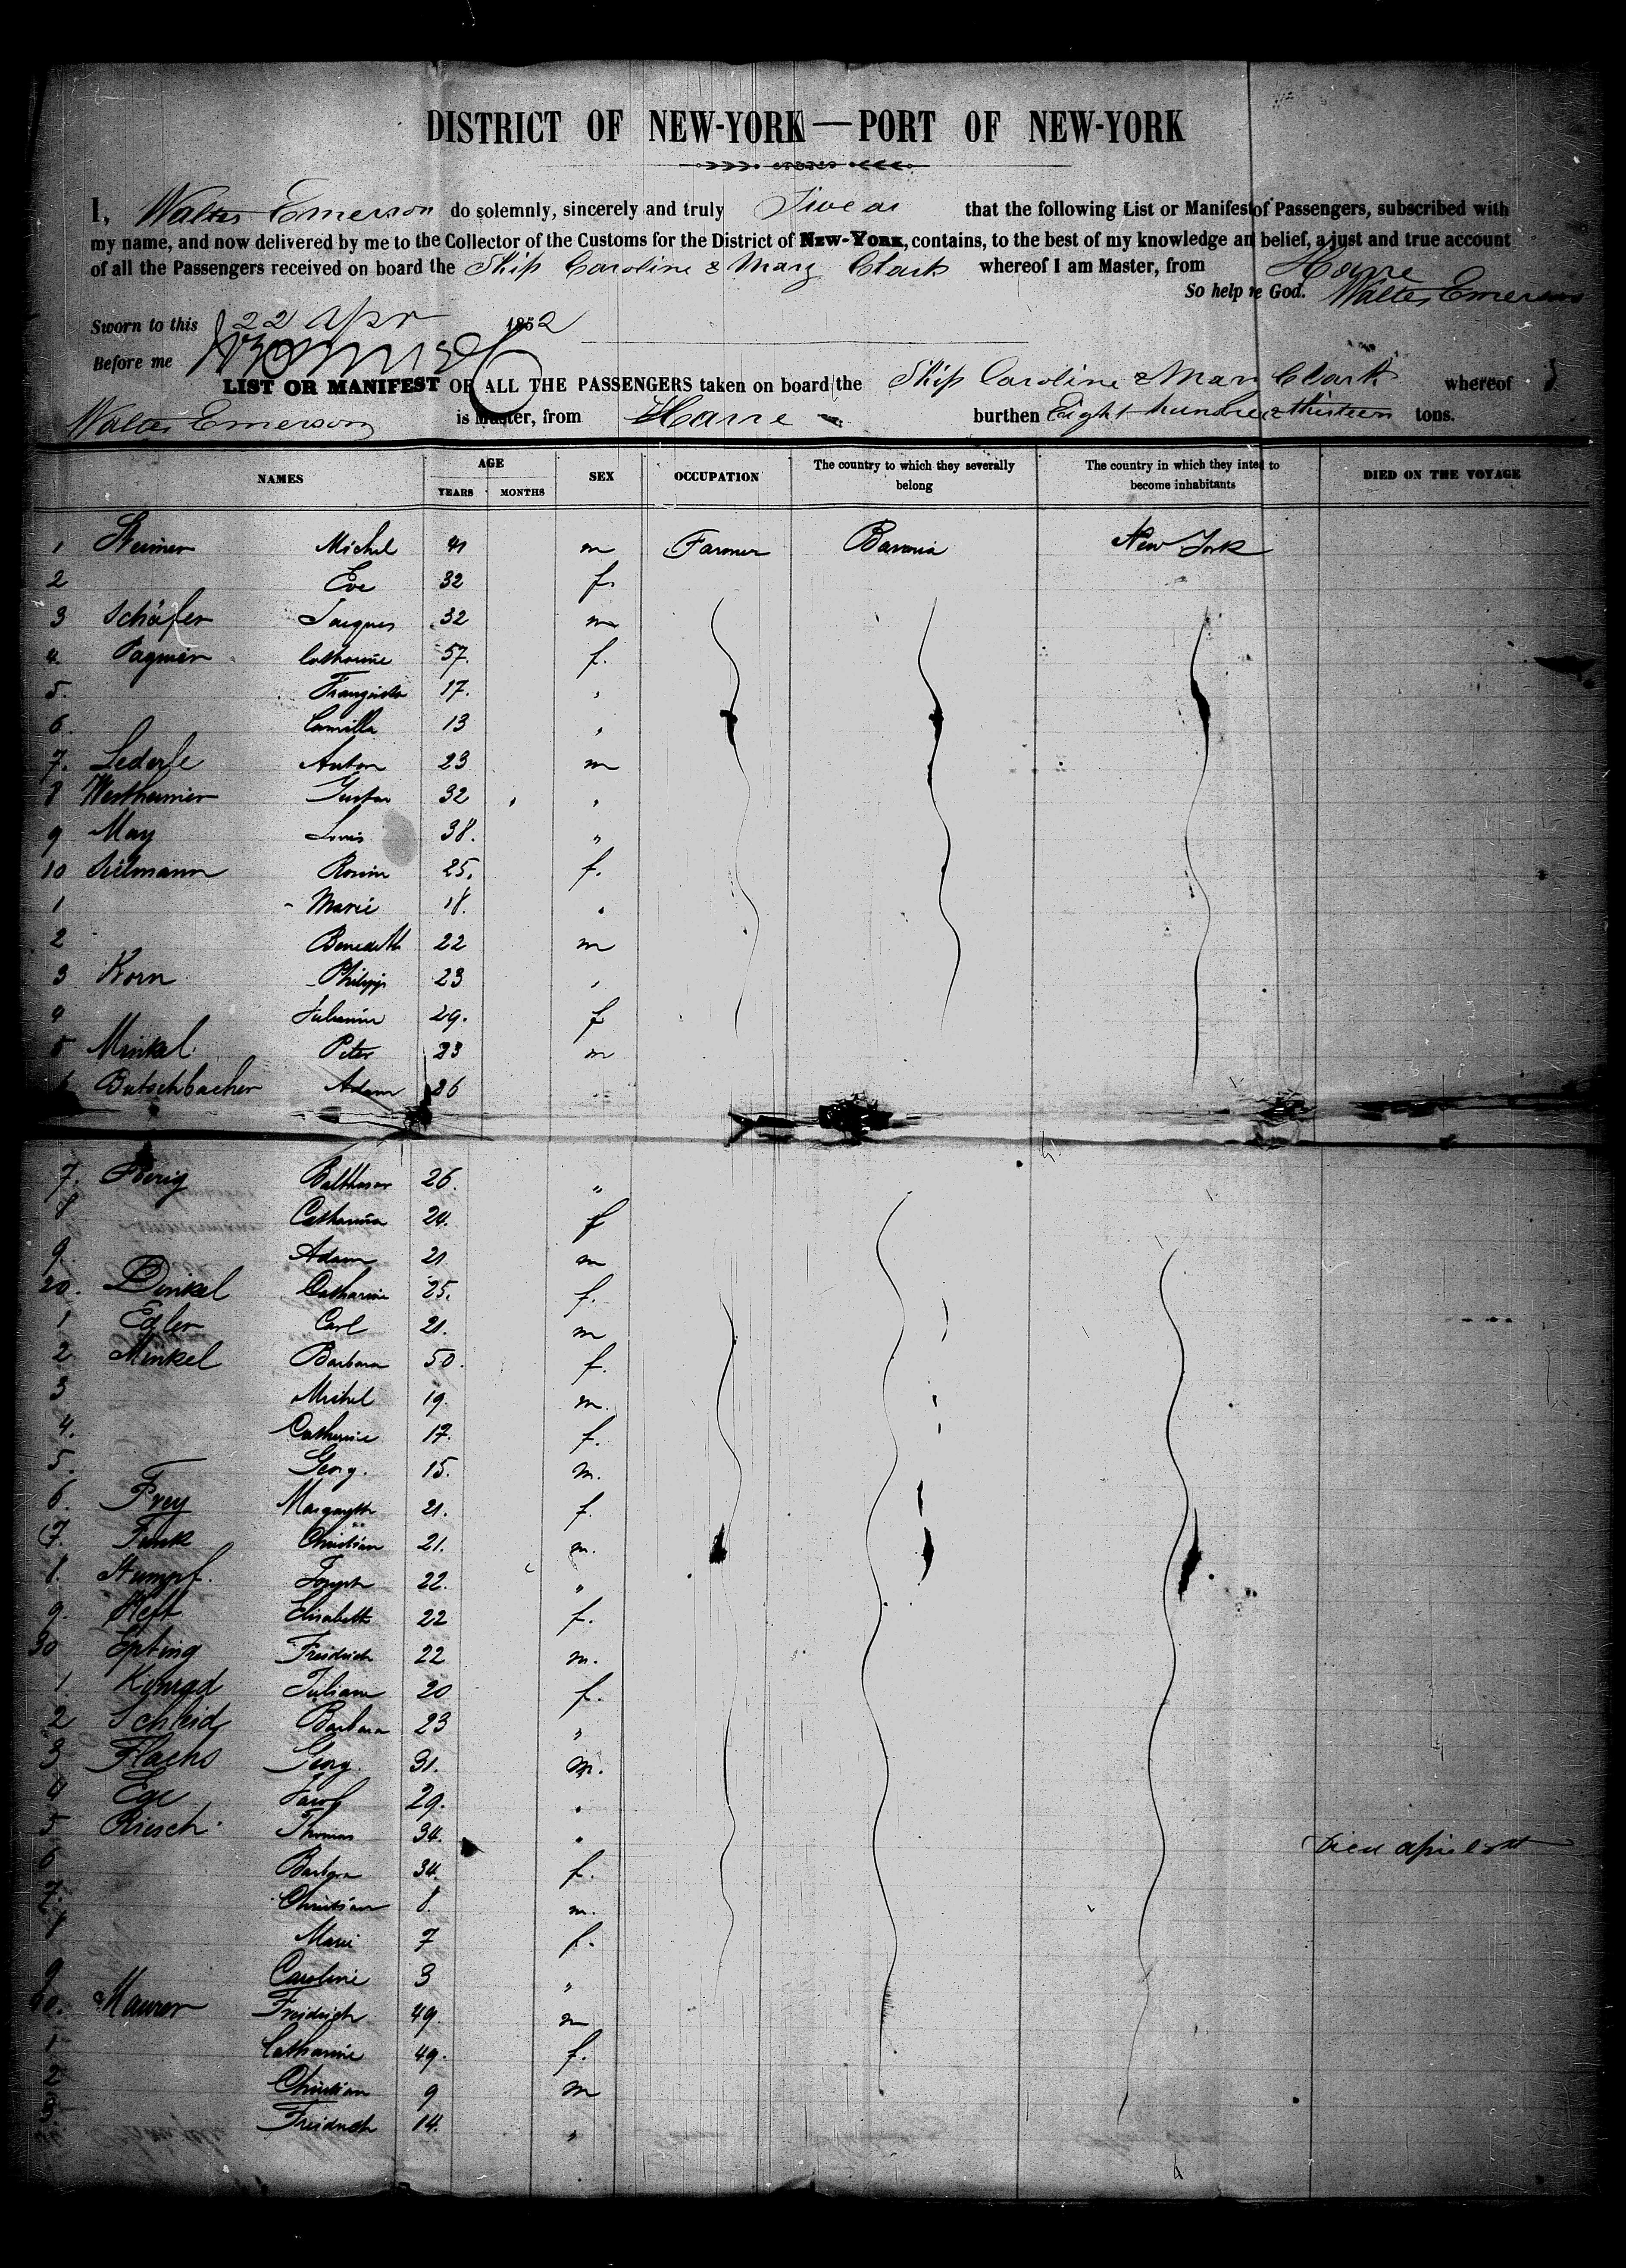 DISTRICT OF NEW-YORK — PORT OF NEW-YORK
I, Walter Emerson do solemnly, sincerely and truly Swear that the following List or Manifest of Passengers, subscribed with
my name, and now delivered by me to the Collector of the Customs for the District of New-York, contains, to the best of my knowledge and belief, a just and true account
of all the Passengers received on board the Ship Caroline & Mary Clark whereof I am Master, from Havre
So help me God. Walter Emerson
Sworn to this 22 Apr 1852
Before me
LIST OR MANIFEST OF ALL THE PASSENGERS taken on board the Ship Caroline & Mary Clark whereof
Walter Emerson is Master, from Havre burthen Eight hundred & thirteen tons.
NAMES AGE YEARS MONTHS SEX OCCUPATION The country to which they severally belong The country in which they intend to become inhabitants DIED ON THE VOYAGE
1 Michel 41 m Farmer Bavaria New York
2 Eve 32 f.
3 Schäfer Jacques 32 m
4. Catharine 57. f.
5. Franziska 17. "
6. Camilla 13 "
7. Lederle Anton 23 m
8 Westheimer Gustav 32 "
9 May Louis 38. "
10 Rosine 25. f.
1 Marie 18. "
2 Benedikt 22 m
3 Korn Philipp 23 "
4 29. f
5 Minkel Peter 23 m
6 Butschbacher Adam 26 "
7. Balthasar 26. "
8 Catharina 24. f
9. Adam 21 m
20. Dinkel Catharine 25. f.
1 Edler Carl 21. m
2 Minkel Barbara 50. f.
3 Michel 19. m.
4. Catherine 17. f.
5. Georg. 15. m.
6. Frey Margareth 21. f.
7. Funk Christian 21. m.
8. Stumpf. Joseph 22. "
9. Heft Elisabeth 22 f.
30 Epting Freidrich 22 m.
1 Konrad Juliane 20 f.
2 Schleid Barbara 23 "
3 Flachs Georg. 31. m.
4 Ege Jacob 29. "
5 Riesch Thomas 34. " Died april
6 Barbara 34. f.
7. Christian 8. m.
8 Marie 7 f.
9 Caroline 3 "
40. Maurer Freidrich 49. m
1 Catharine 49. f.
2 Christian 9 m
3. Freidrich 14. "